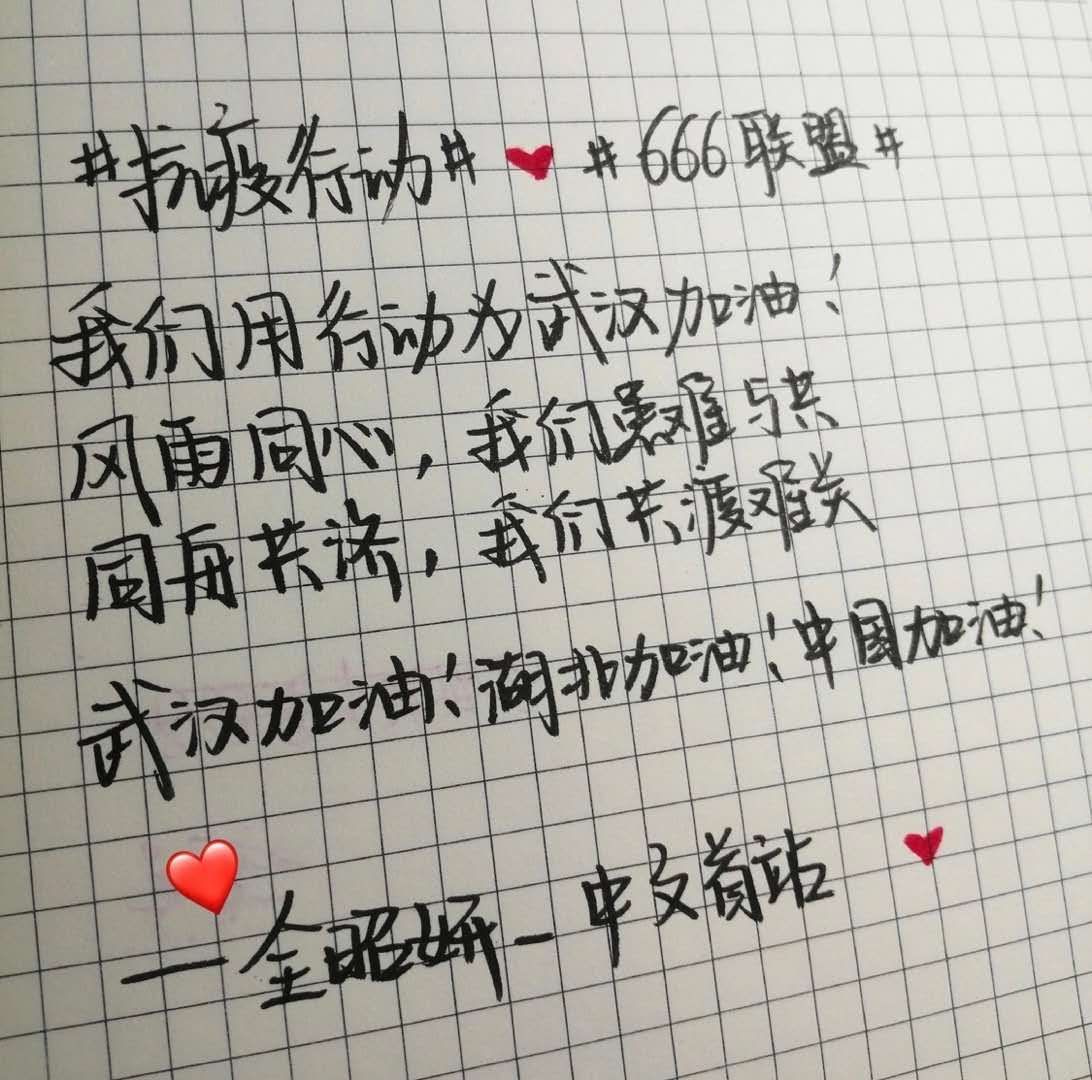 #抗疫行动# ❤ #666联盟#
我们用行动为武汉加油！
风雨同心，我们患难与共
同舟共济，我们共渡难关
武汉加油！湖北加油！中国加油！
❤ ❤
—全昭妍_中文首站